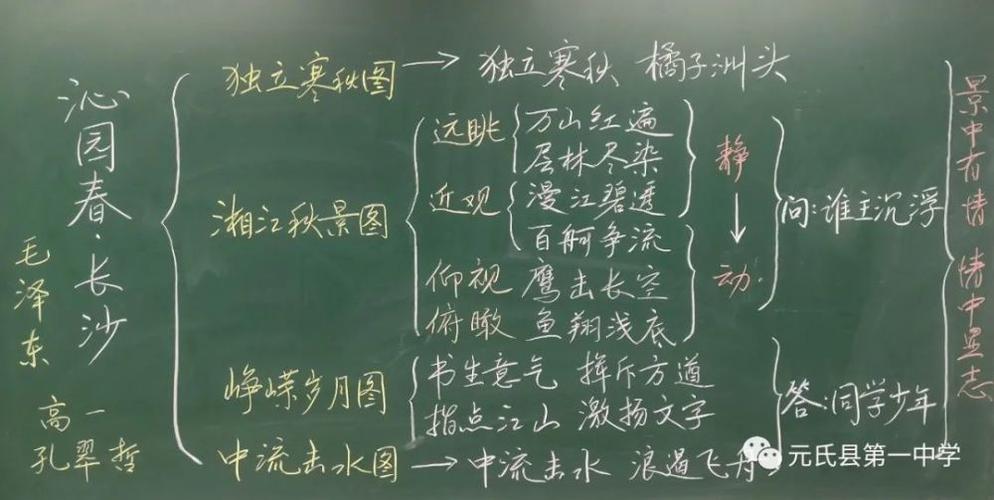 沁园春·长沙
毛泽东
高一
孔翠哲
独立寒秋图 → 独立寒秋 橘子洲头
湘江秋景图
远眺
万山红遍
层林尽染
近观
漫江碧透
百舸争流
仰视 鹰击长空
俯瞰 鱼翔浅底
静
↓
动
问:谁主沉浮
峥嵘岁月图
书生意气 挥斥方遒
指点江山 激扬文字
答:同学少年
中流击水图 → 中流击水 浪遏飞舟
景中有情 情中显志
元氏县第一中学